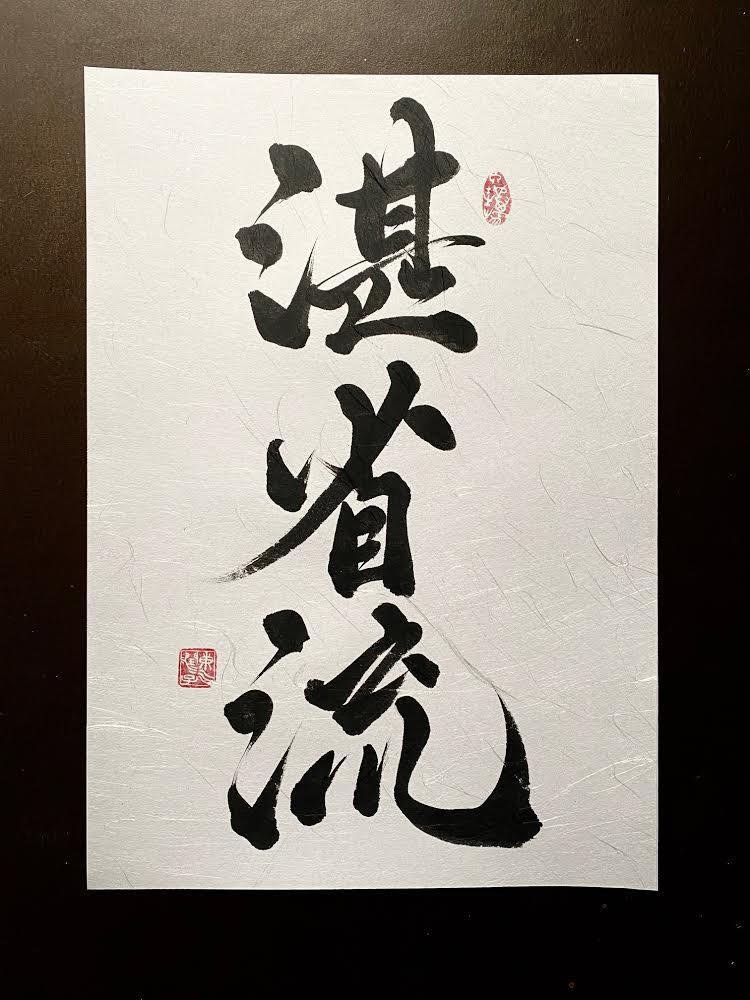 湛省流